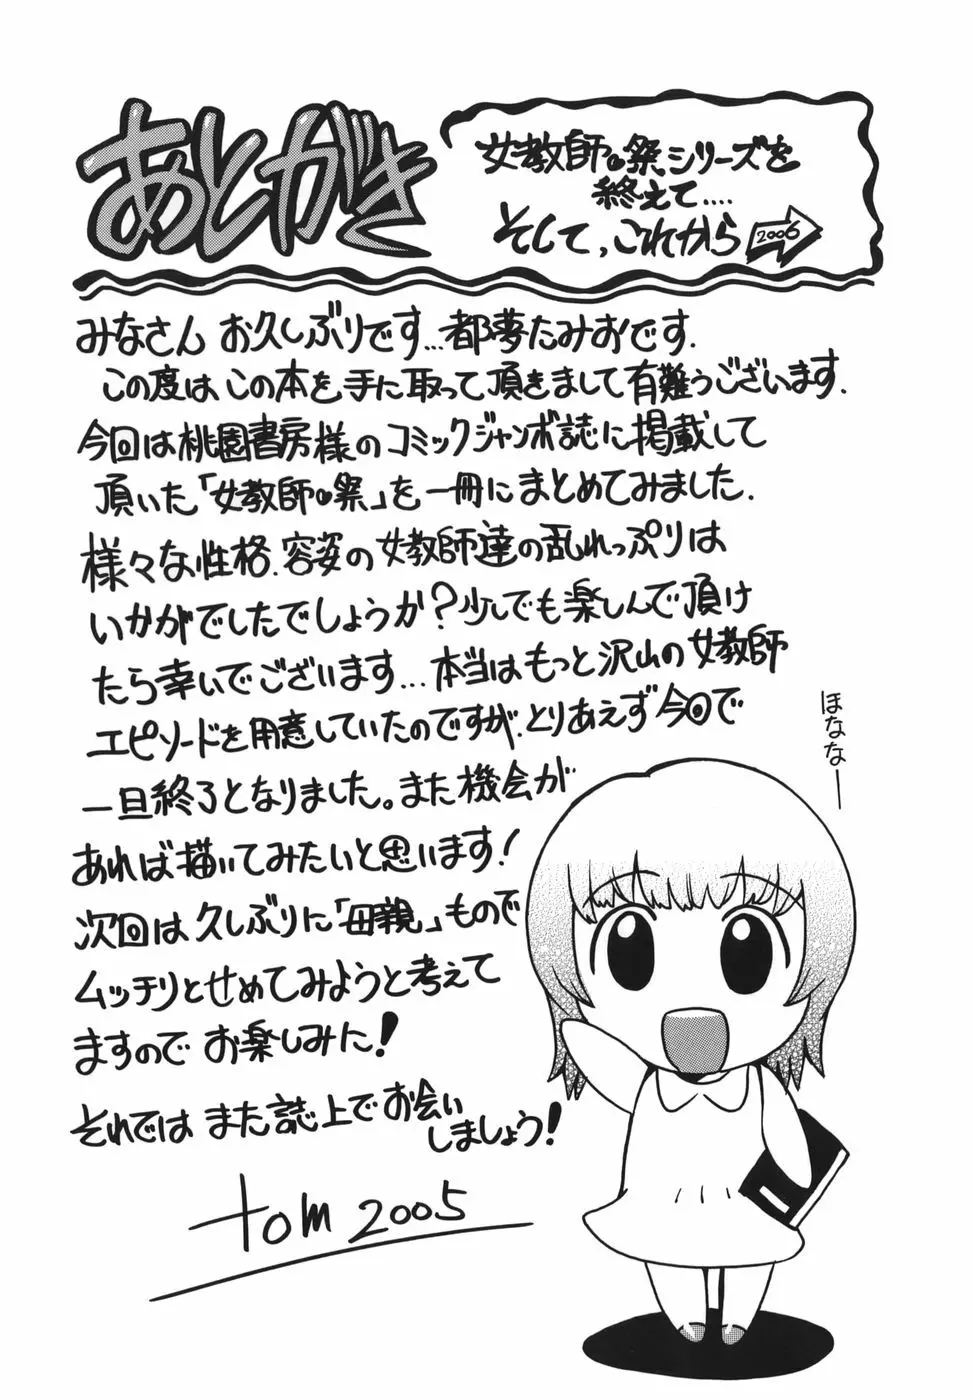 あとがき
女教師の祭シリーズを
終えて....
そして、これから
2006
みなさん お久しぶりです...都夢たみおです.
この度は、この本を手に取って頂きまして有難うございます.
今回は桃園書房様のコミックジャンボ誌に掲載して
頂いた「女教師の祭」を一冊にまとめてみました.
様々な性格.容姿の女教師達の乱れっぷりは
いかがでしたでしょうか?少しでも楽しんで頂け
たら幸いでございます...本当はもっと沢山の女教師
エピソードを用意していたのですが、とりあえず今回で
一旦終了となりました。また機会が
あれば描いてみたいと思います!
次回は久しぶりに「母親」もので
ムッチリとせめてみようと考えて
ますのでお楽しみに!
それでは また誌上でお会い
しましょう!
tom 2005
ほななー